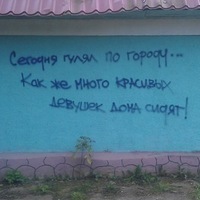 Сегодня гулял по городу...
Как же много красивых
девушек дома сидят!